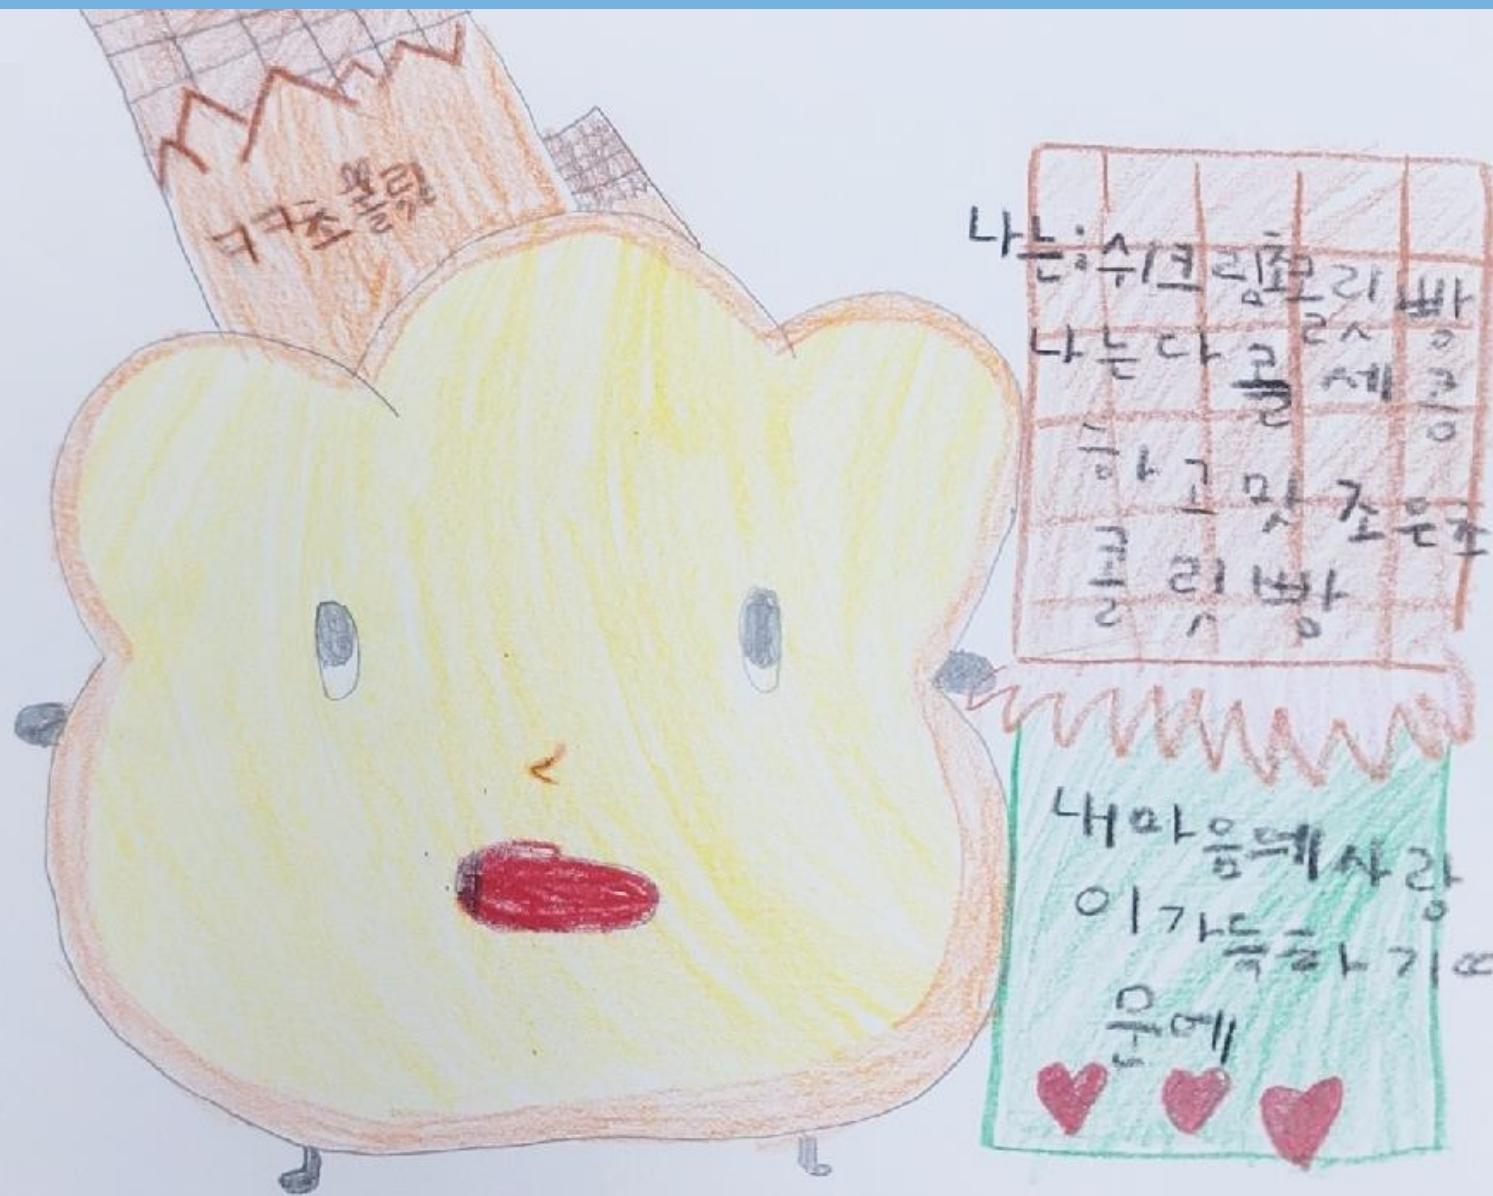 초콜릿
나는:슈크림초콜릿빵
나는다콜세콤
하고맛조은초
콜릿빵
내마음에사랑
이가득하기때
문에